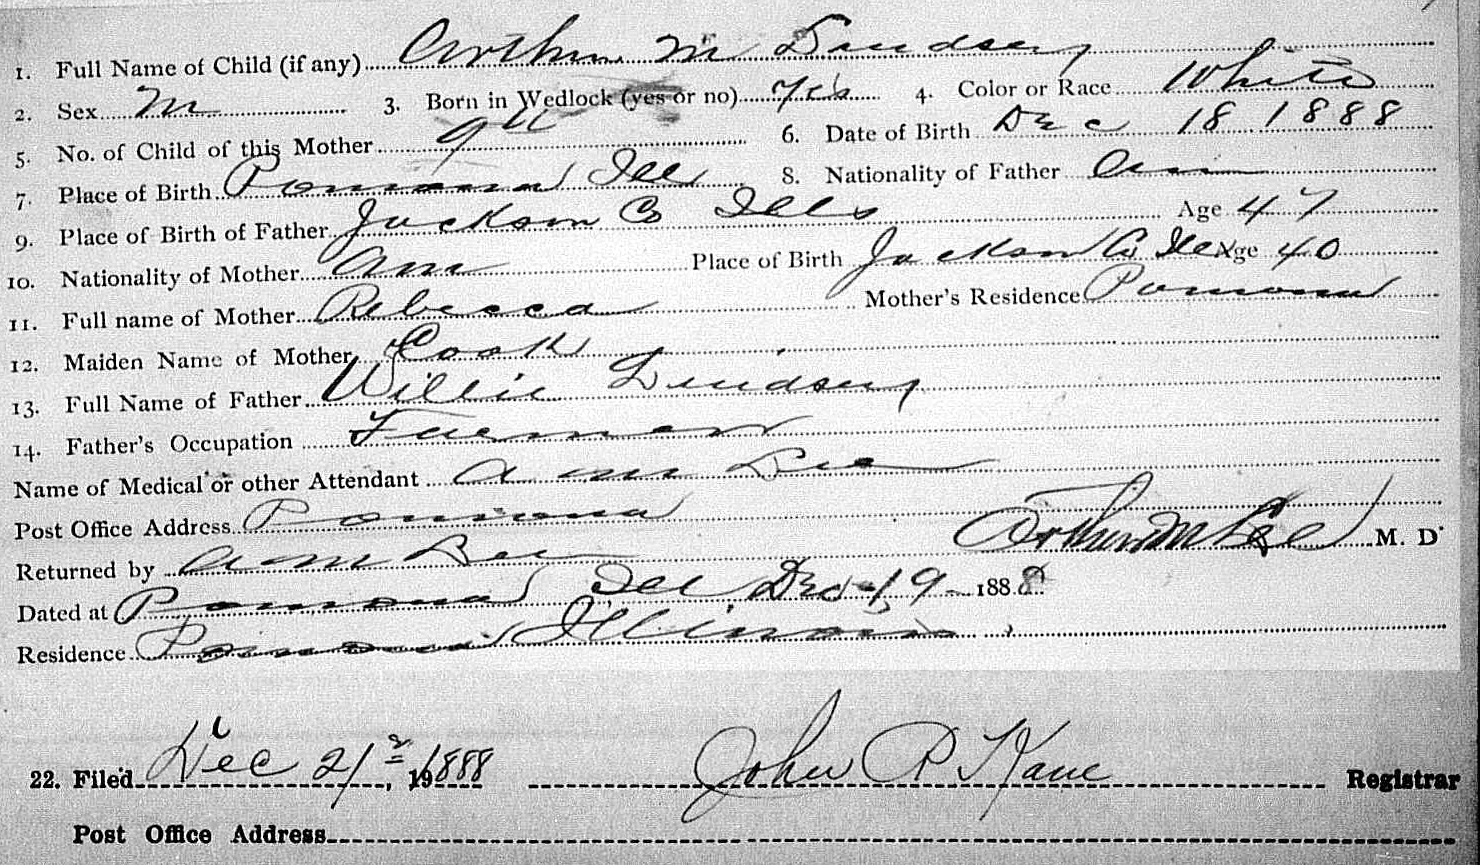 1. Full Name of Child (if any) Arthur M Lindsey
2. Sex M 3. Born in Wedlock (yes or no) Yes 4. Color or Race White
5. No. of Child of this Mother 9th 6. Date of Birth Dec 18 1888
7. Place of Birth Pomona Ill 8. Nationality of Father Am
9. Place of Birth of Father Jackson Co Ills Age 47
10. Nationality of Mother Am Place of Birth Jackson Co Ill Age 40
11. Full name of Mother Rebecca Mother's Residence Pomona
12. Maiden Name of Mother Cook
13. Full Name of Father Willie Lindsey
14. Father's Occupation Farmer
Name of Medical or other Attendant A M Lee
Post Office Address Pomona
Returned by A M Lee Arthur M Lee M. D.
Dated at Pomona Ill Dec 19 1888
Residence Pomona Illinois
22. Filed Dec 21, 1888 John P Kane Registrar
Post Office Address